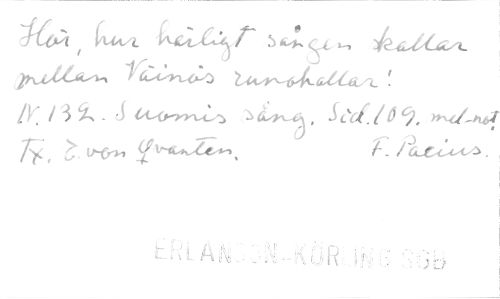 Hör, hur härligt sången skallar
mellan Väinös runohallar!
N. 132. Suomis sång. Sid. 109. mel-not.
Tx. E. von Qvanten. F. Pacius.
ERLANSON-KÖRLING SGB